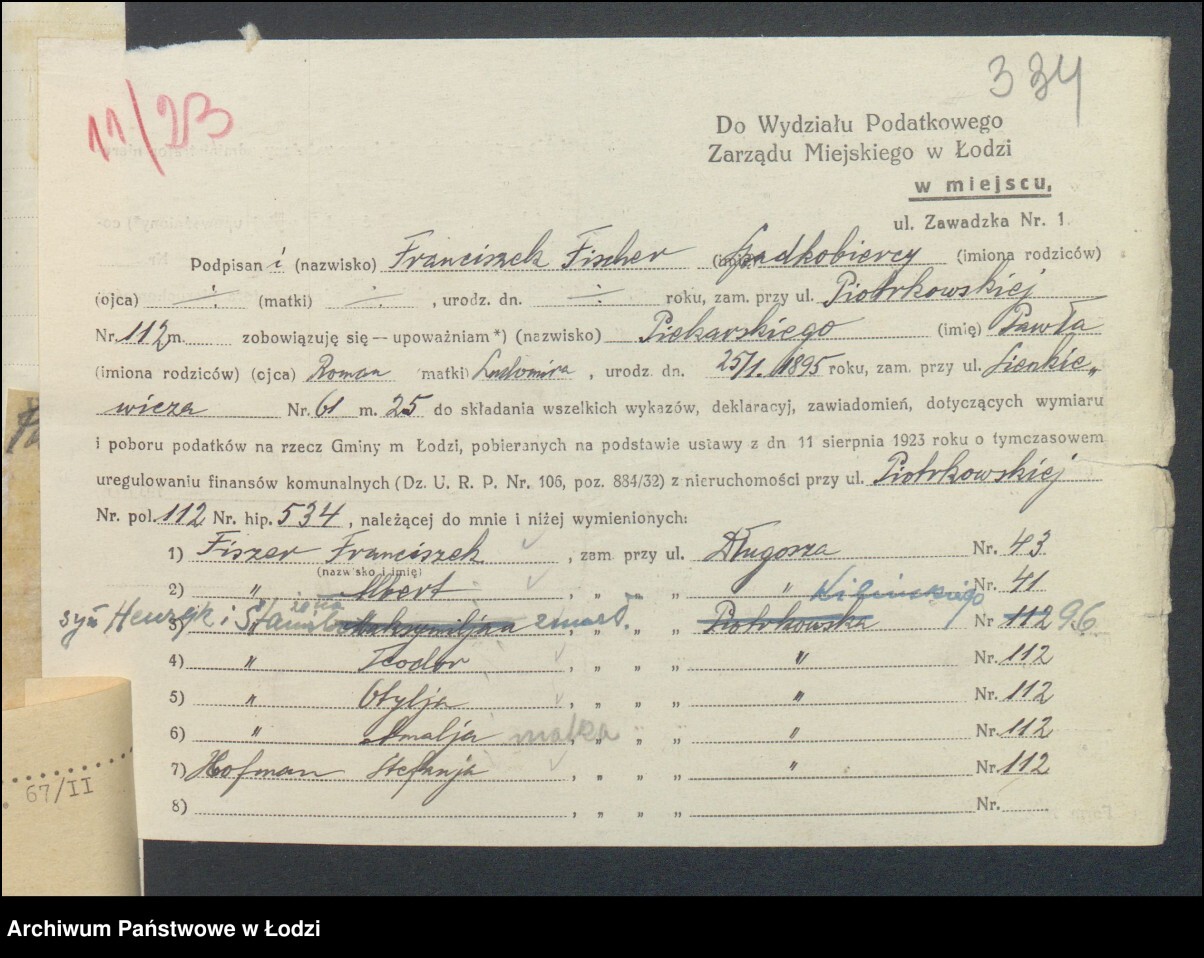 334
11/23
Do Wydziału Podatkowego
Zarządu Miejskiego w Łodzi
w miejscu,
ul. Zawadzka Nr. 1.
Podpisani (nazwisko) Franciszek Fischer Spadkobiercy (imiona rodziców)
(ojca) ÷ (matki) ÷ , urodz. dn. ÷ roku, zam. przy ul. Piotrkowskiej
Nr. 112 m. zobowiązuję się — upoważniam *) (nazwisko) Piekarskiego (imię) Pawła
(imiona rodziców) (ojca) Roman matki) Ludomira , urodz. dn. 25/1. 1895 roku, zam. przy ul. Sienkie„
wicza Nr. 61 m. 25 do składania wszelkich wykazów, deklaracyj, zawiadomień, dotyczących wymiaru
i poboru podatków na rzecz Gminy m Łodzi, pobieranych na podstawie ustawy z dn 11 sierpnia 1923 roku o tymczasowem
uregulowaniu finansów komunalnych (Dz. U. R. P. Nr. 106, poz. 884/32) z nieruchomości przy ul. Piotrkowskiej
Nr. pol. 112 Nr. hip. 534 , należącej do mnie i niżej wymienionych:
1) Fiszer Franciszek , zam. przy ul. Długosza Nr. 43
(nazwisko i imię)
2) " Albert , „ „ " Nr. 41
żona Kilińskiego
syn Henryk i 3) " Maksymiljan zmarł. , „ „ Piotrkowska Nr 112 96
4) " Teodor , „ „ „ " Nr. 112
5) " Otylja , „ „ „ " Nr. 112
6) " Amalja matka , „ „ „ " Nr. 112
7) Hofman Stefanja , „ „ „ " Nr. 112
8) , „ „ „ Nr.
67/II
Archiwum Państwowe w Łodzi